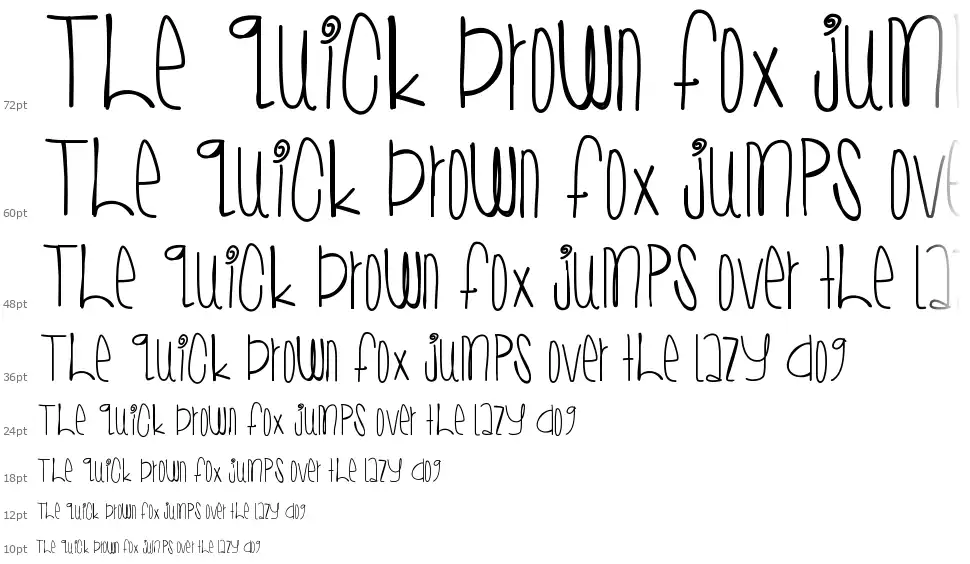 72pt The quick brown fox jum
60pt The quick brown fox jumps ove
48pt The quick brown fox jumps over the la
36pt The quick brown fox jumps over the lazy dog
24pt The quick brown fox jumps over the lazy dog
18pt The quick brown fox jumps over the lazy dog
12pt The quick brown fox jumps over the lazy dog
10pt The quick brown fox jumps over the lazy dog